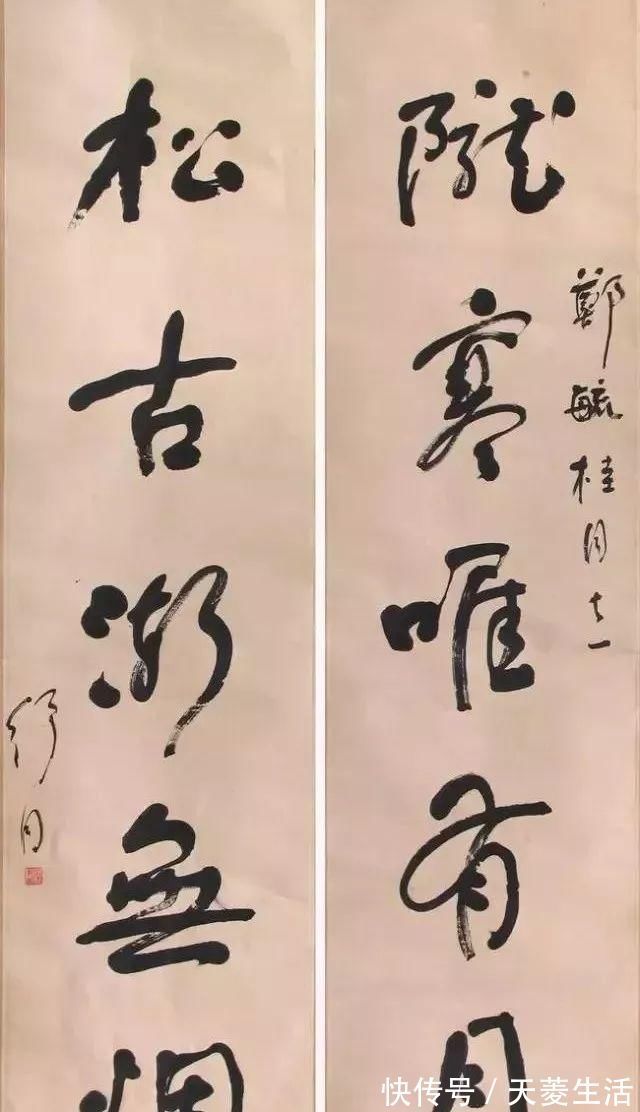 鄭毓桂同志
隴寒唯有月
松古漸無烟
舒同
快传号/天菱生活